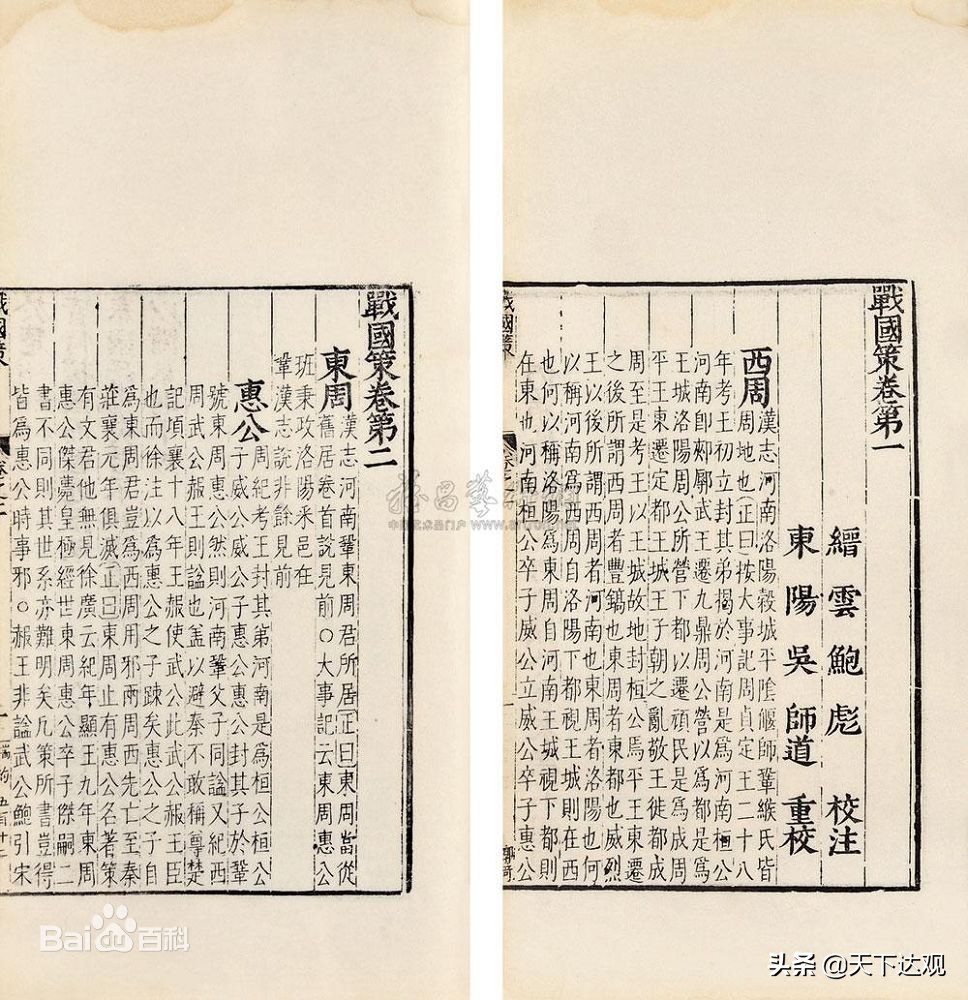 戰國策卷第一
縉雲鮑彪校注
東陽吳師道重校
西周
漢志河南洛陽穀城平陰偃師鞏緱氏皆
周地也正曰按大事記周貞定王二十八
年考王初立封其弟揭於河南是爲河南桓公
河南卽郟鄏武王遷九鼎周公營以爲都是爲
王城洛陽周公所營下都以遷頑民是爲成周
平王東遷定都王城王子朝之亂敬王徙都成
周至是考王以王城故地封桓公焉平王東遷
之後所謂西周者豐鎬也東周者東都也威烈
王以後所謂西周者河南也東周者洛陽也何
以稱河南爲西周自洛陽下都視王城則在西
也何以稱洛陽爲東周自河南王城視下都則
在東也河南桓公卒子威公立威公卒子惠公
戰國策
戰國策卷第二
東周
漢志河南鞏東周君所居正曰東周當從
舊居卷首說見前○大事記云東周惠公
班秉政洛陽采邑在
鞏漢志說非餘見前
惠公
周紀考王封其弟河南是爲桓公桓公
子威公威公子惠公惠公封其子於鞏
號東周惠公然則河南鞏父子同謚又紀西
周武公赧王則謚也盖以避秦不敢稱尊楚
記頃襄十八年王赧使武公此武公赧王臣
也而徐注以爲惠公之子踈矣惠公之子自
爲東周君豈爲西周用邪兩周西先亡至秦
莊襄元年俱滅正曰東周止有惠公名著策
有文君他無見徐廣云紀年顯王九年東周
惠公傑薨皇極經世東周惠公卒子傑嗣二
書不同則其世系亦難明矣凡策所書豈得
皆爲惠公時事邪○赧王非謚武公鮑引宋
戰國策
Bai百科
头条 @天下达观